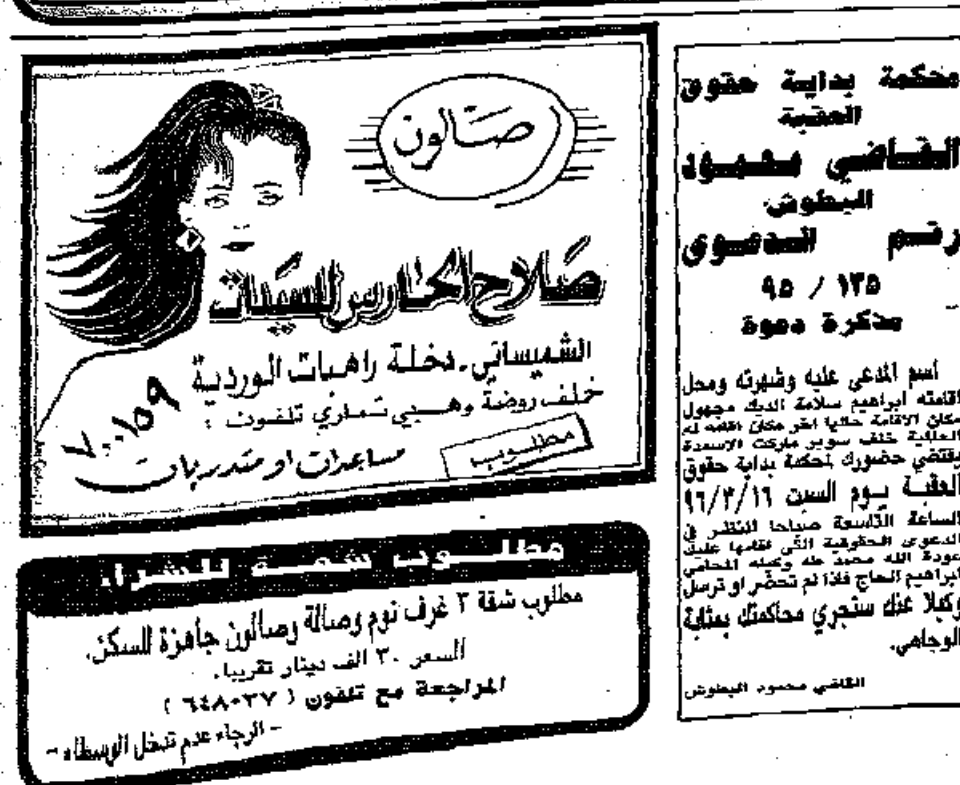 محكمة بداية حقوق
العقبة
القاضي محمود
البطوش
رقم الدعوى
١٣٥ / ٩٥
مذكرة دعوة
أسم المدعى عليه وشهرته ومحل
اقامته ابراهيم سلامة الديك مجهول
مكان الاقامة حاليا اخر مكان اقامة له
العقبة خلف سوبر ماركت الاسعدة
يقتضي حضورك لمحكمة بداية حقوق
العقبة يوم السبت ٩٦/٣/١٦
الساعة التاسعة صباحا للنظر في
الدعوى الحقوقية التي اقامها عليك
عودة الله محمد طه وكيله المحامي
ابراهيم الحاج فاذا لم تحضر او ترسل
وكيلا عنك ستجري محاكمتك بمثابة
الوجاهي.
القاضي محمود البطوش
صالون
صلاح الحاروس للسيدات
الشميساني - دخلة راهبات الوردية
خلف روضة وهبي تماري تلفون :
٧٠٠١٥٩
مطلوب
مساعدات او متدربات
مطلوب شقة للشراء
مطلوب شقة ٣ غرف نوم وصالة وصالون جاهزة للسكن.
السعر ٣٠ الف دينار تقريبا.
المراجعة مع تلفون ( ٦٤٨٠٣٧ )
- الرجاء عدم تدخل الوسطاء -